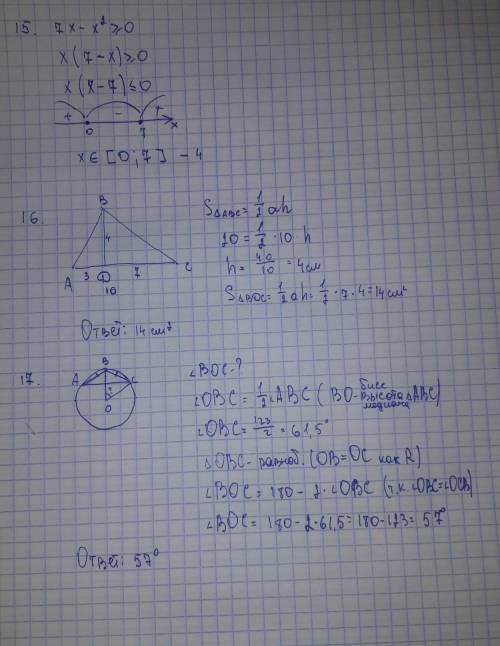 15. 7x - x² ≥ 0
x(7-x) ≥ 0
x(x-7) ≤ 0
+ - +
0 7 x
x ∈ [0;7] - 4
16
B
4
A 3 D 7 C
10
S△ABC = 1/2 ah
20 = 1/2 · 10 h
h = 40/10 = 4 см
S△BDC = 1/2 ah = 1/2 · 7 · 4 = 14 см²
Ответ: 14 см²
17.
B
A C
?
O
∠BOC - ?
∠OBC = 1/2 ∠ABC (BO - бисс высота медиана △ABC)
∠OBC = 123/2 = 61,5°
△OBC - равноб. (OB = OC как R)
∠BOC = 180 - 2·∠OBC (т.к. ∠OBC = ∠OCB)
∠BOC = 180 - 2·61,5 = 180 - 123 = 57°
Ответ: 57°